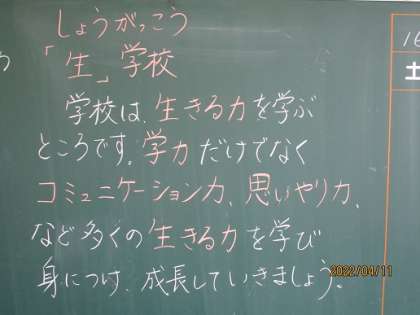 しょうがっこう
「生」学校
学校は、生きる力を学ぶ
ところです。学力だけでなく
コミュニケーション力、思いやり力、
など多くの生きる力を学び
身につけ、成長していきましょう。
16
土
2022/04/11